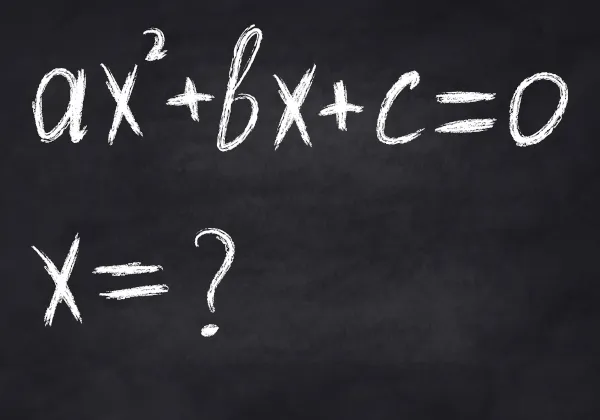 ax²+bx+c=0
x=?